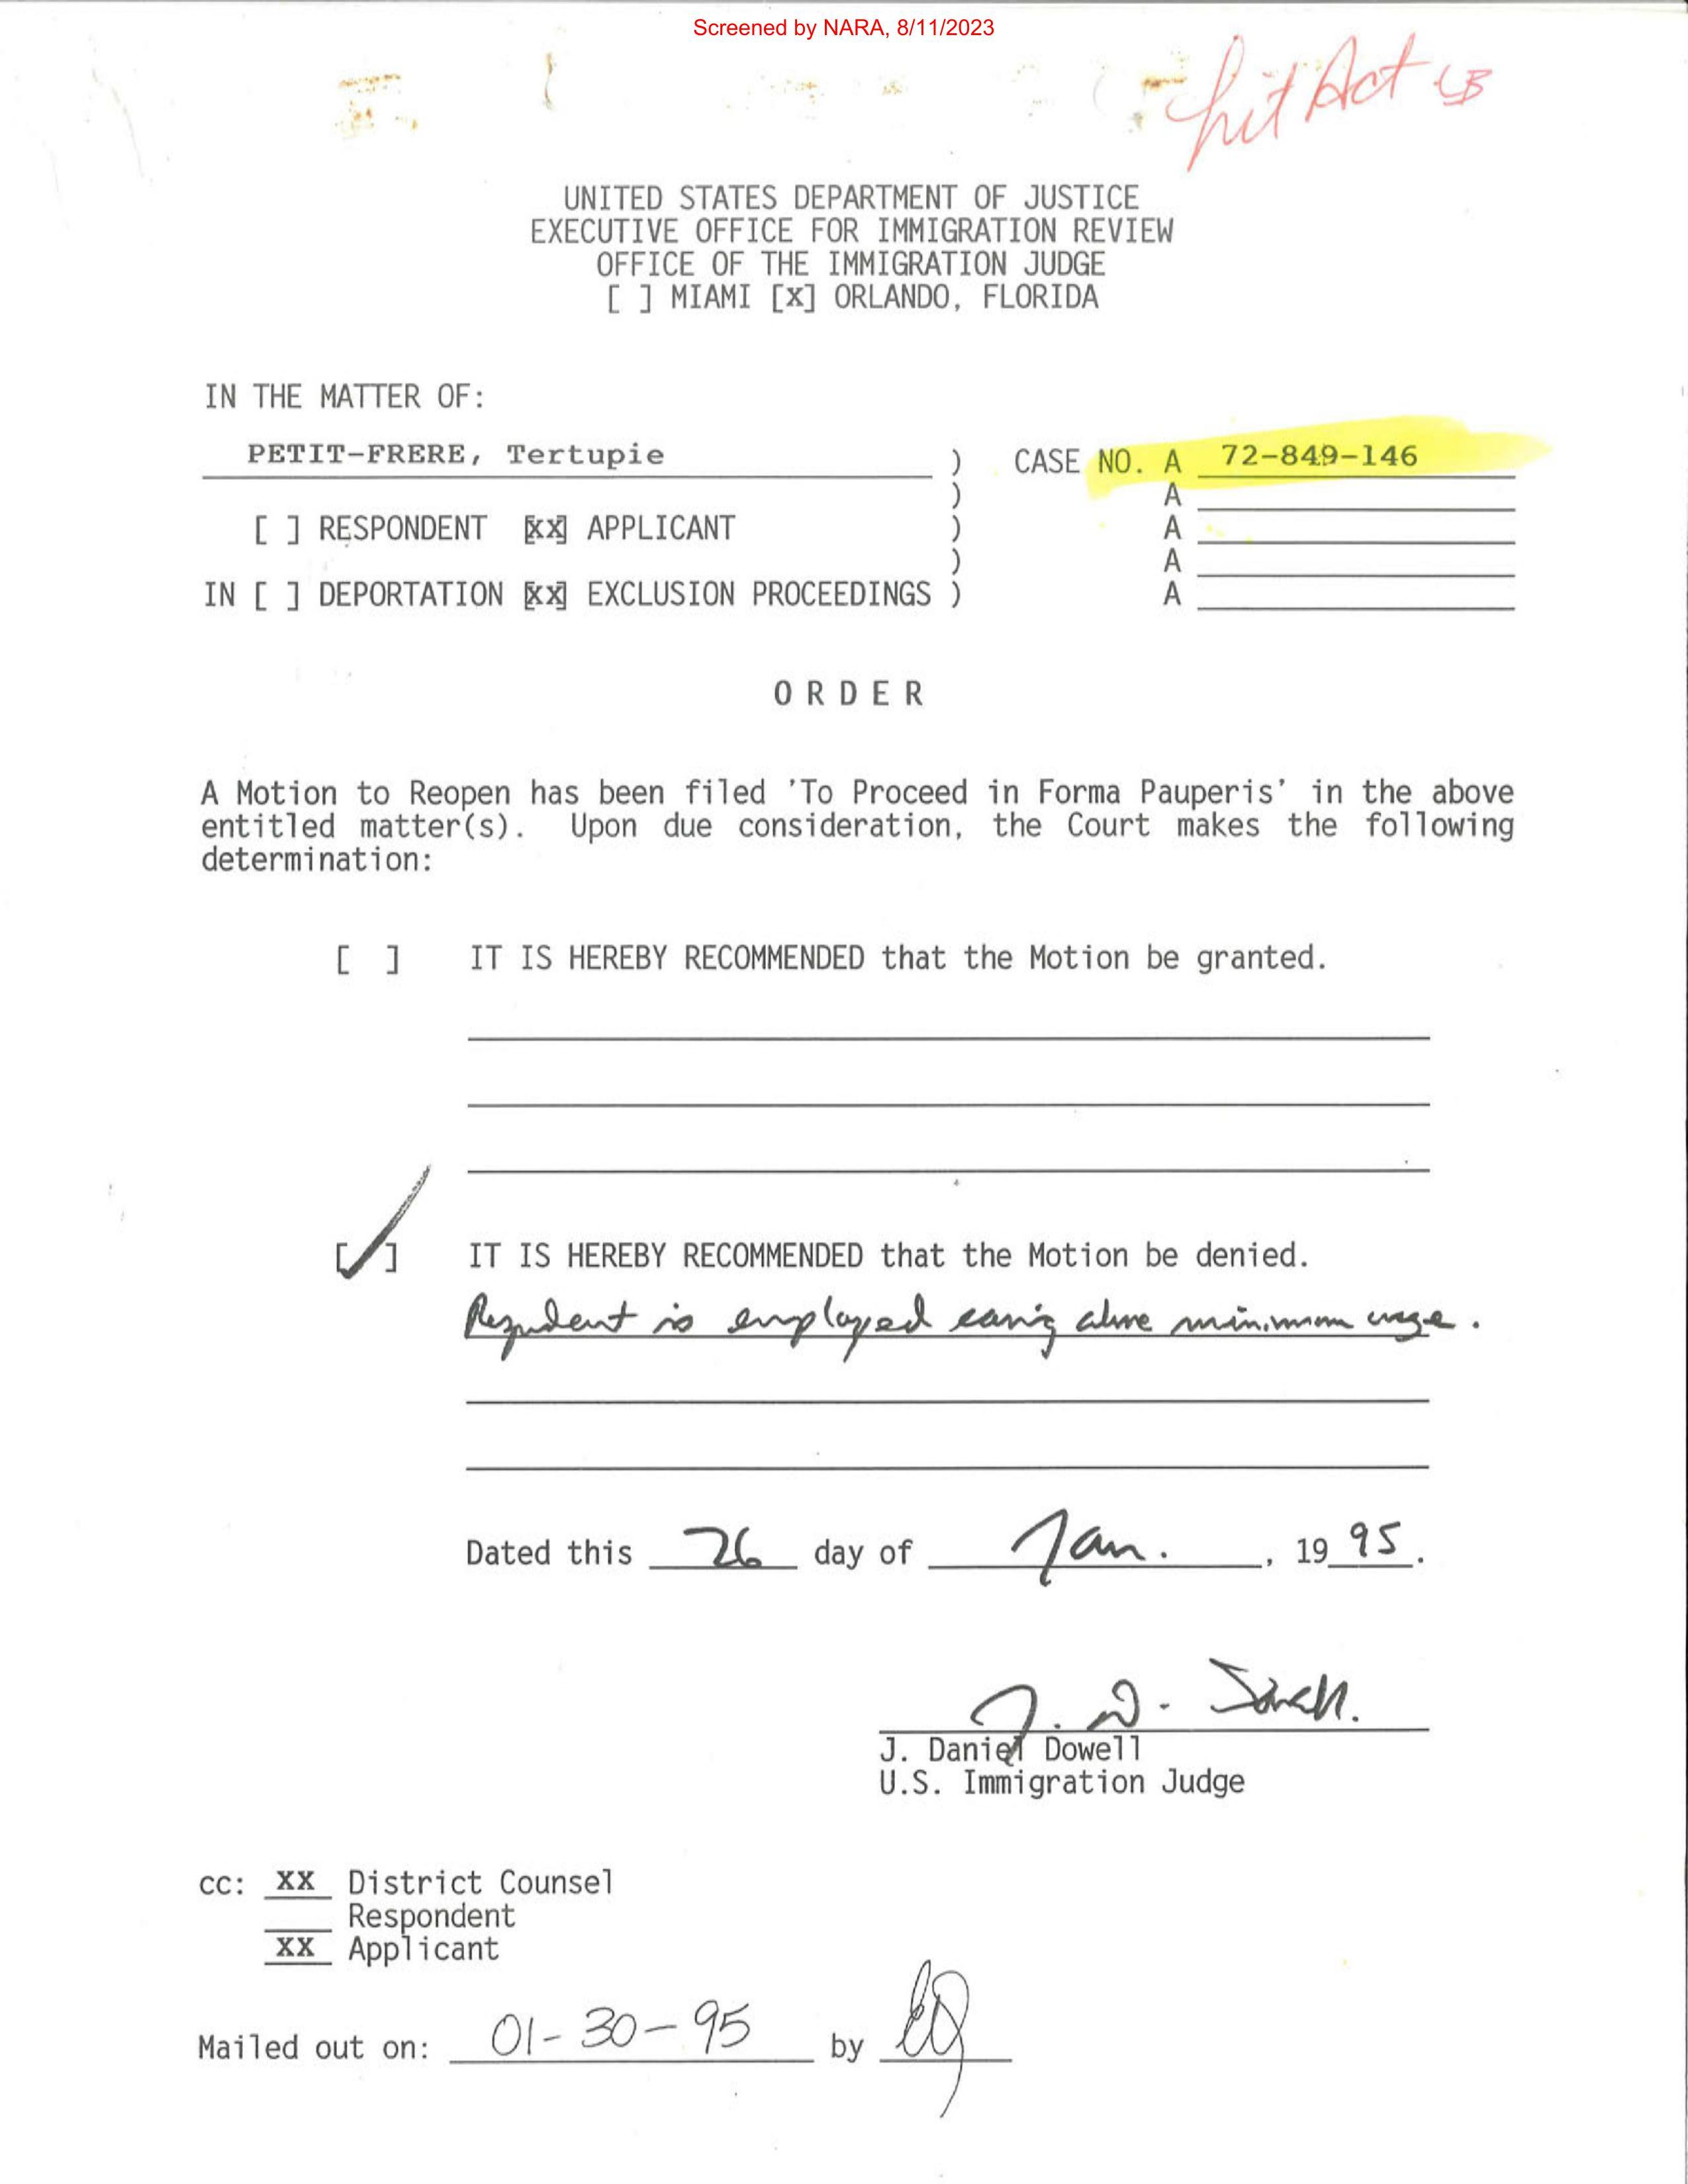 Screened by NARA, 8/11/2023
Lit Act
UNITED STATES DEPARTMENT OF JUSTICE
EXECUTIVE OFFICE FOR IMMIGRATION REVIEW
OFFICE OF THE IMMIGRATION JUDGE
[ ] MIAMI [X] ORLANDO, FLORIDA
IN THE MATTER OF:
PETIT-FRERE, Tertupie ) CASE NO. A 72-849-146
) A
[ ] RESPONDENT [XX] APPLICANT ) A
) A
IN [ ] DEPORTATION [XX] EXCLUSION PROCEEDINGS ) A
O R D E R
A Motion to Reopen has been filed 'To Proceed in Forma Pauperis' in the above
entitled matter(s). Upon due consideration, the Court makes the following
determination:
[ ] IT IS HEREBY RECOMMENDED that the Motion be granted.
[✓] IT IS HEREBY RECOMMENDED that the Motion be denied.
Respondent is employed earning above minimum wage.
Dated this 26 day of Jan. , 19 95.
J. Daniel Dowell
U.S. Immigration Judge
cc: XX District Counsel
Respondent
XX Applicant
Mailed out on: 01-30-95 by